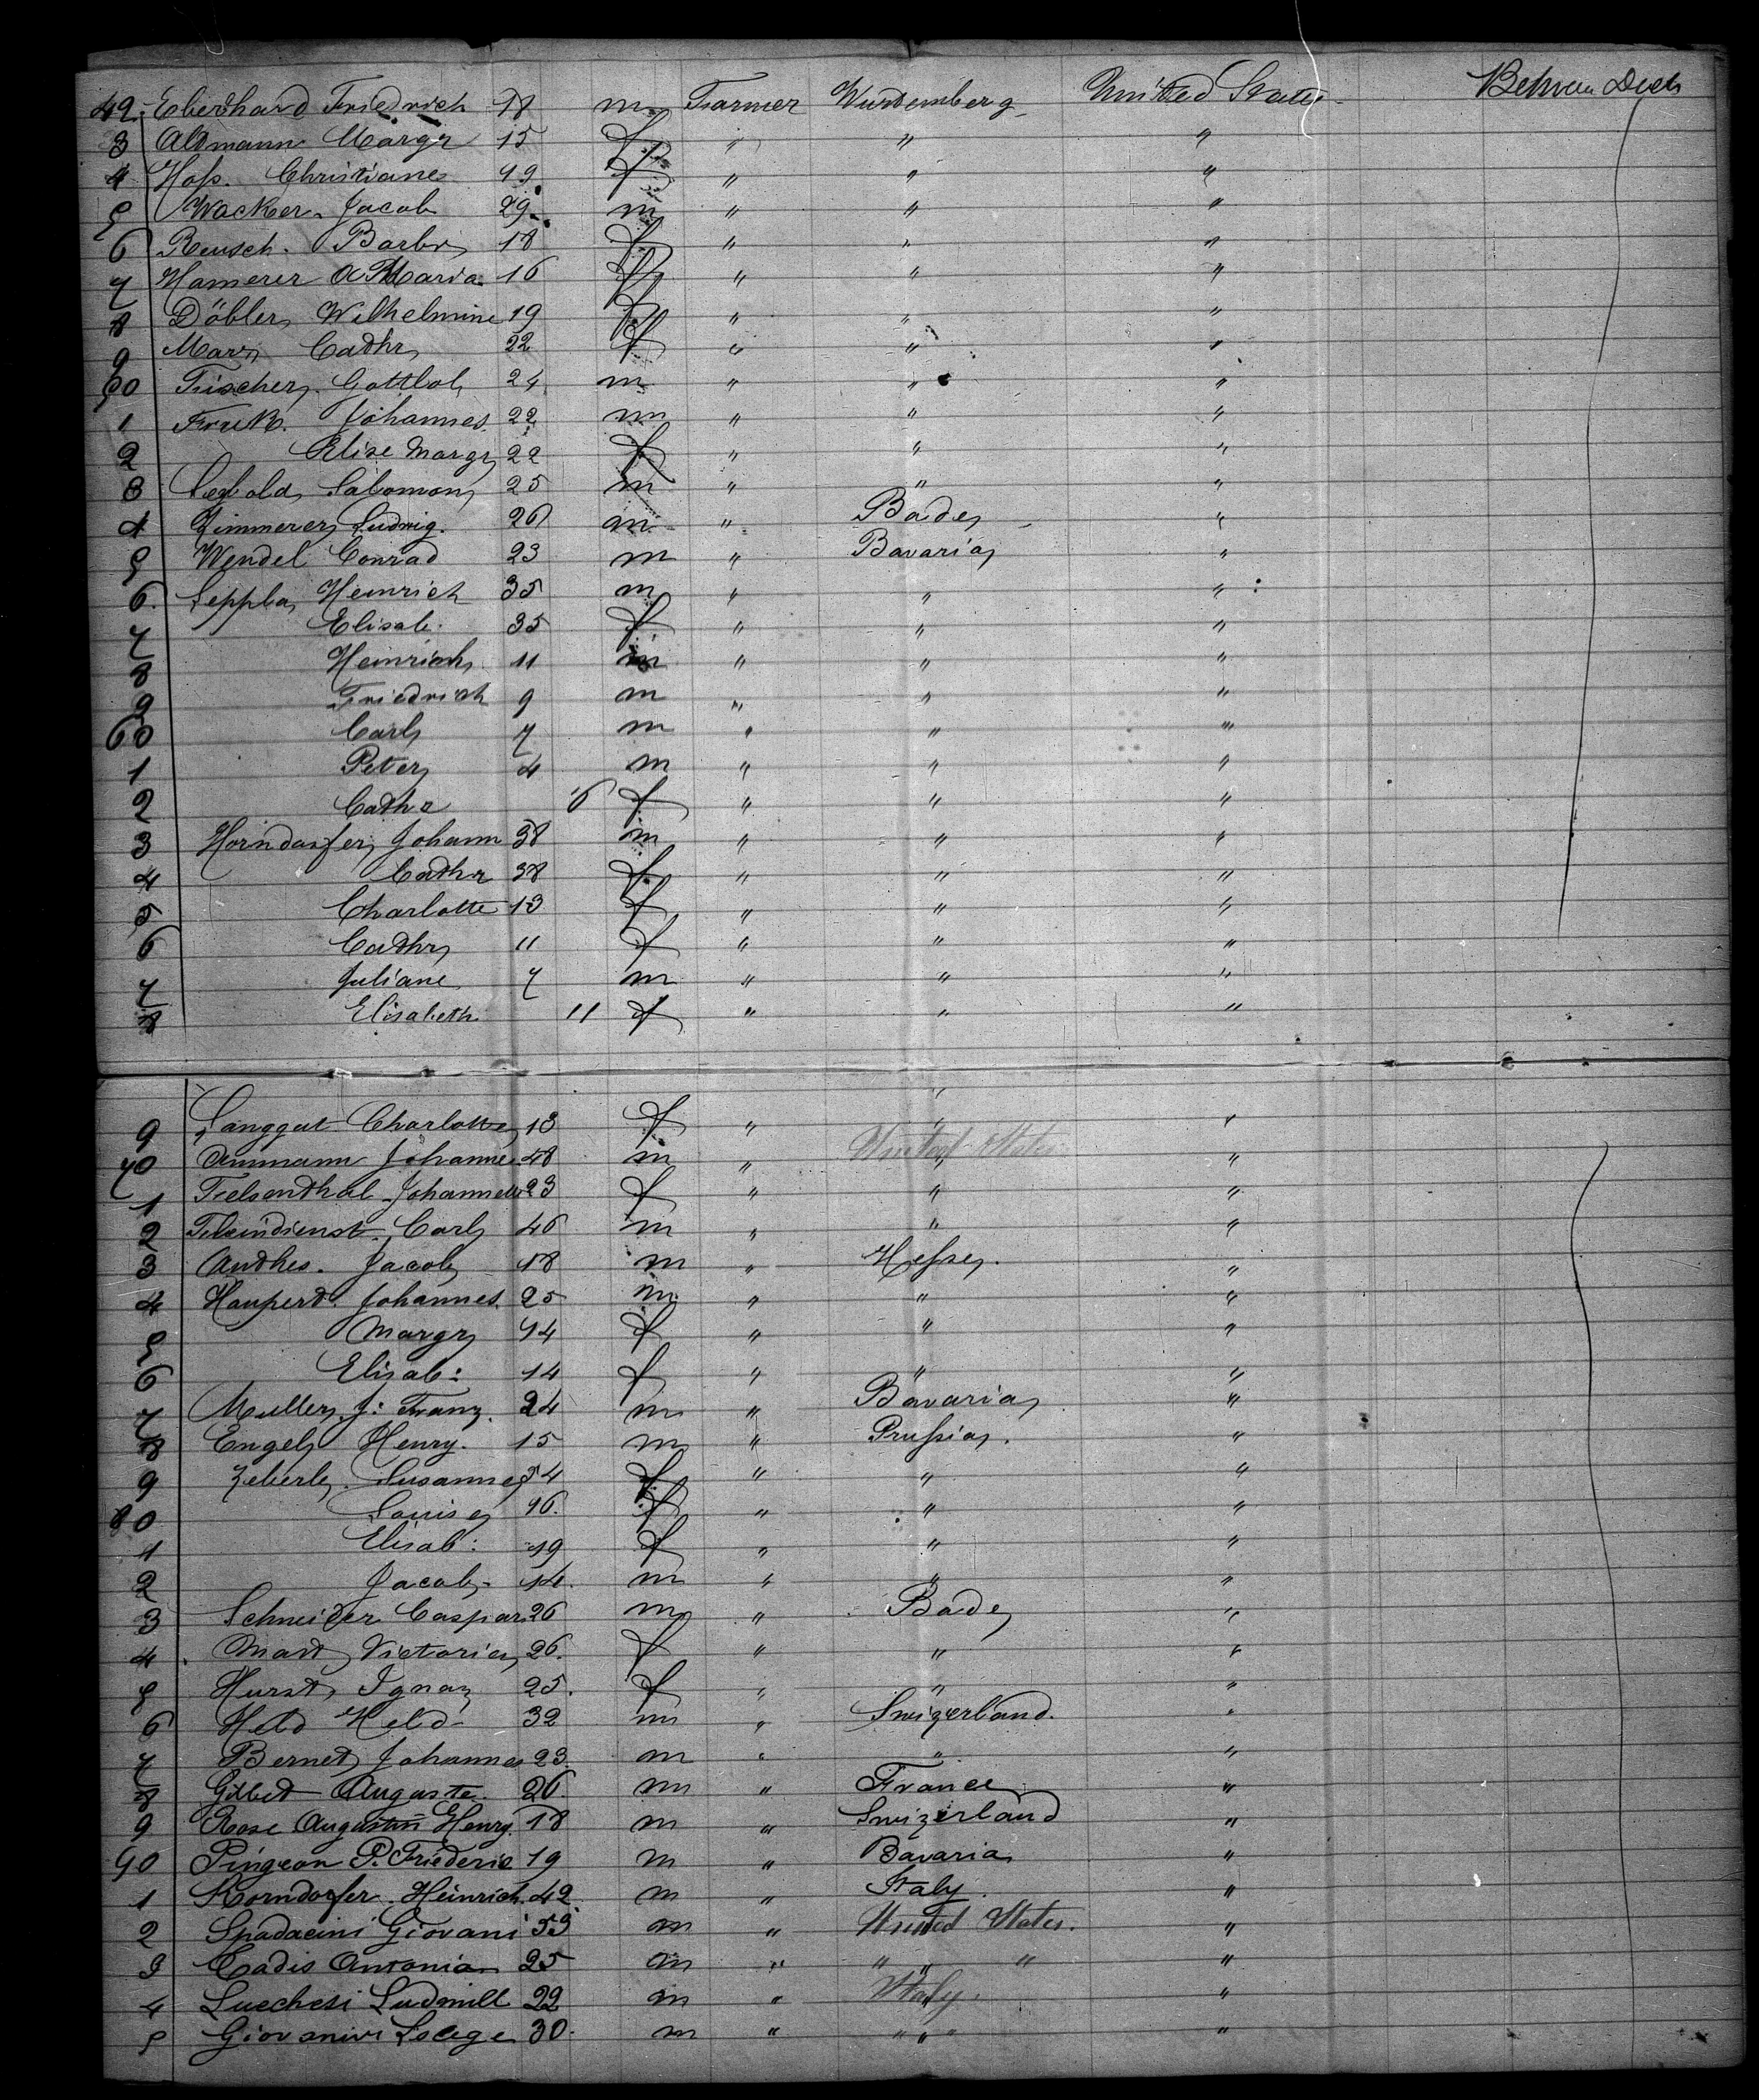 42. Eberhard Friedrich 18 m Farmer Wurtemberg United States Betwen Deck
3 Altmann Margr 15 f " " "
4 Hoß. Christiane 49 f " " "
5 Wacker Jacob 29 m " " "
6 Reusch. Barbr 18 f " " "
7 Hamerer A Maria 16 f " " "
8 Döbler Wilhelmine 19 f " " "
9 Marx Cathr 22 f " " "
50 Fischer Gottlob 24 m " " "
1 Frick. Johannes 22 m " " "
2 Elise Margr 22 f " " "
3 Seybold Salomon 25 m " " "
4 Zimmerer Ludwig. 26 m " Baden "
5 Wendel Conrad 23 m " Bavaria "
6. Seppla Heinrich 35 m " " "
7 Elisab: 35 f " " "
8 Heinrich 11 m " " "
9 Friedrich 9 m " " "
60 Carl 7 m " " "
1 Peter 4 m " " "
2 Cathr 6 f " " "
3 Horndasfer Johann 38 m " " "
4 Cathr 38 f " " "
5 Charlotte 13 f " " "
6 Cathr 11 f " " "
7 Juliane 7 m " " "
8 Elisabeth 11 f " " "
9 Langgut Charlotte 13 f " " "
70 Ammann Johanne 48 m " United States " "
1 Felsenthal Johannette 23 f " " "
2 Carl 46 m " " "
3 Anthes. Jacob 18 m " Heßen. "
4 Haupert. Johannes. 25 m " " "
5 Margr 44 f " " "
6 Elisab: 14 f " " "
7 Muller J: Franz. 24 m " Bavaria "
8 Engel Henry. 15 m " Prußia. "
9 Zeberle. Susanne 54 f " " "
80 Louise 16. f " " "
1 Elisab: 19 f " " "
2 Jacob 14. m " " "
3 Schneider Caspar 26 m " Baden "
4 Mart Victoria 26. f " " "
5 Hurst Ignaz 25. f " " "
6 Held Held 32 m " Swizerland. "
7 Bernet Johannes 23. m " " "
8 Gilbet Auguste. 26. m " France "
9 Rose Augustin Henry. 18 m " Swizerland "
90 Pingeon P. Friederic 19 m " Bavaria "
1 Korndorfer. Heinrich 42. m " Italy. "
2 Spadacini Giovani 53 m " United States. "
3 Cadis Antonia 25 m " " " " "
4 Lucchesi Ludmill 22 m " Italy. "
5 Giovanini 30. m " " " " "